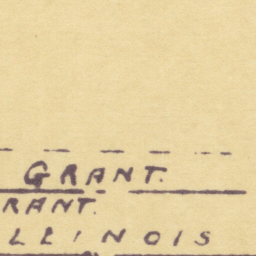 GRANT.
RANT.
LLINOIS